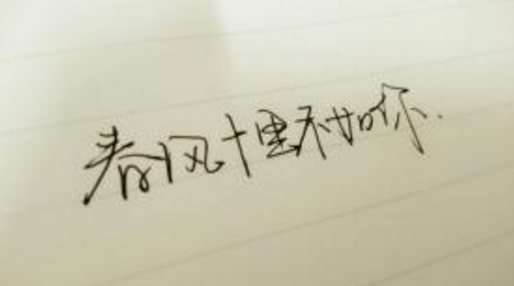 春风十里不如你.